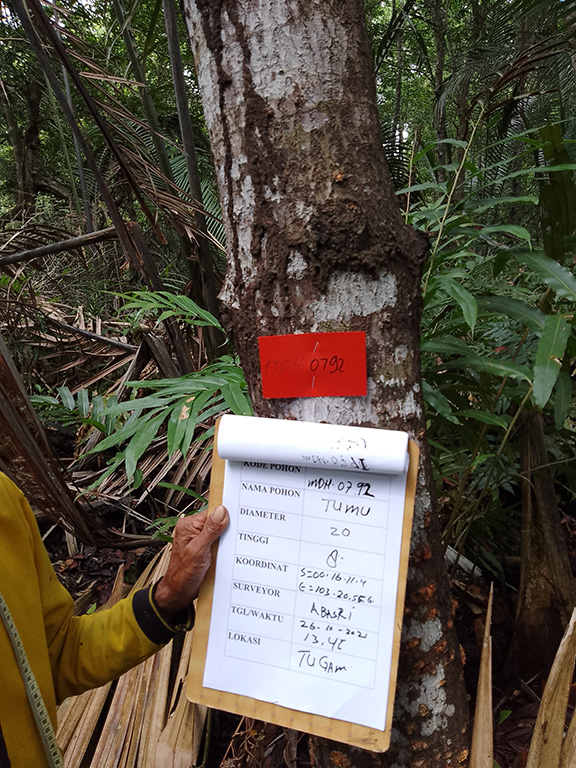 MDH 0792
KODE POHON MDH-07.92
NAMA POHON TUMU
DIAMETER 20
TINGGI 8.
KOORDINAT S=00.16.11.4
E=103.20.56.6
SURVEYOR ABASRI
TGL/WAKTU 26-10-2021
13.45
LOKASI TUGAM.